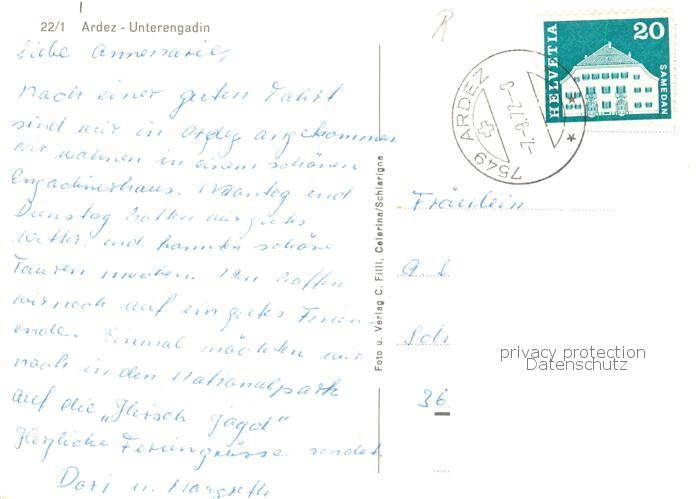 22/1 Ardez - Unterengadin
Liebe Annemarie,
Nach einer guten Fahrt
sind wir in Ardez angekommen.
Wir wohnen in einem schönen
Engadinerhaus. Montag und
Dienstag hatten wir gutes
Wetter und konnten schöne
Touren machen. Wir hoffen
wir noch auf ein gutes Ferien-
ende. Einmal möchten wir
noch in den Nationalpark
auf die „Hirsch jagd"
Herzliche Feriengrüsse sendet
Dori u. Margreth
Foto u. Verlag C. Filli, Celerina/Schlarigna
HELVETIA
20
SAMEDAN
7549 ARDEZ
Fräulein
A.
Sch
36
privacy protection
Datenschutz